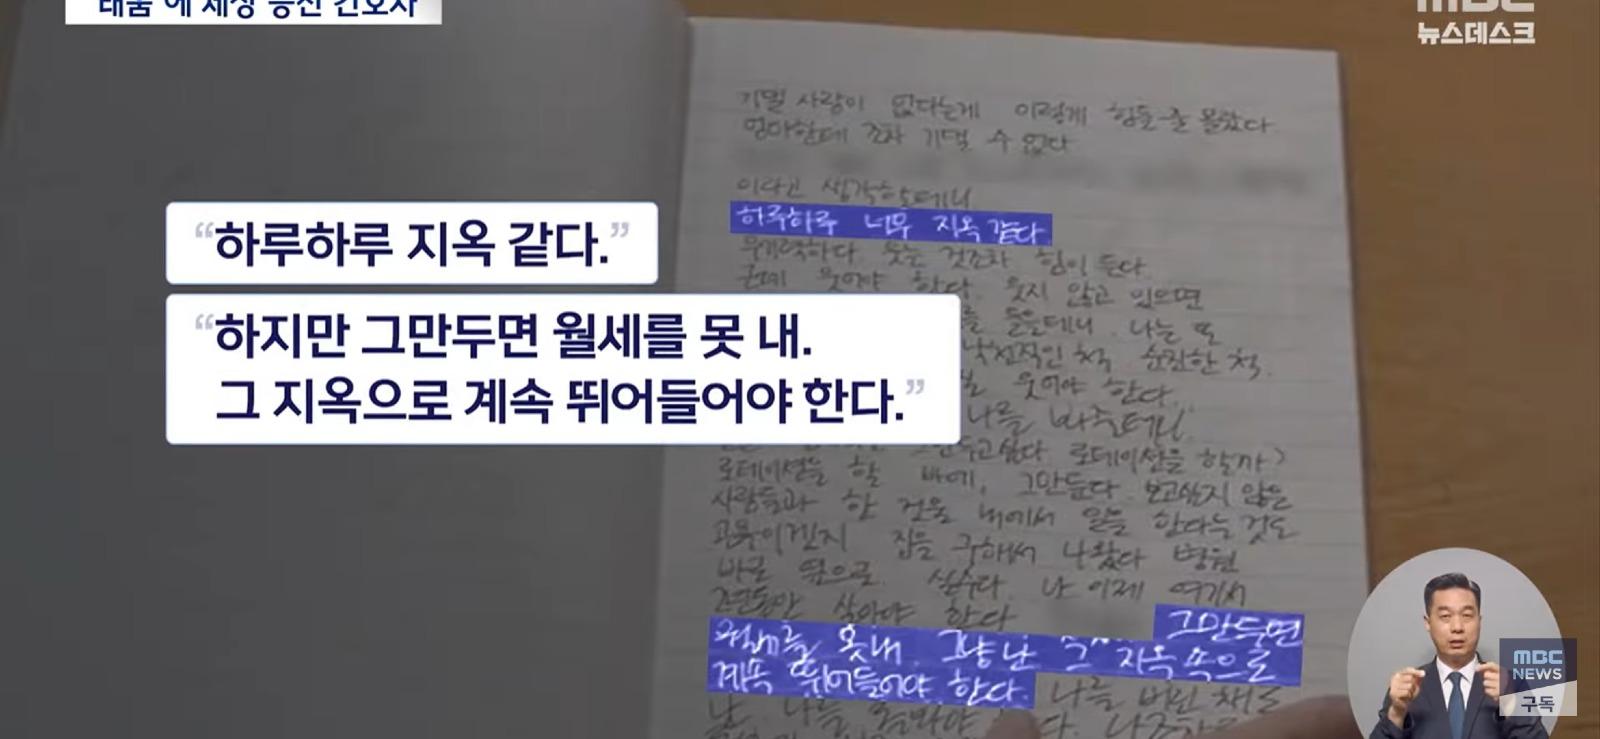 "태움"에 세상 등진 간호사
MBC
뉴스데스크
기댈 사람이 없다는게 이렇게 힘들 줄 몰랐다
엄마한테 조차 기댈 수 없다
이라고 생각할테니
하루하루 너무 지옥같다.
무기력하다. 웃는 것조차 힘이 든다.
근데 웃어야 한다. 웃지 않고 있으면
들을테니. 나는 또
낙천적인 척 순진한 척.
웃어야 한다.
나를 봐줄테니
"하루하루 지옥 같다."
"하지만 그만두면 월세를 못 내.
그 지옥으로 계속 뛰어들어야 한다."
그만두고싶다. 로테이션을 할까?
로테이션을 할 바에, 그만둔다. 보고싶지 않은
사람들과 한 건물 내에서 일을 한다는 것도
고문이겠지 집을 구해서 나왔다 병원
바로 옆으로. 실수다. 난 이제 여기서
2년동안 살아야 한다 그만두면
월세를 못내. 그냥 난 그 지옥 속으로
계속 뛰어들어야 한다. 나를 버린 채로
난 나를
MBC
NEWS
구독